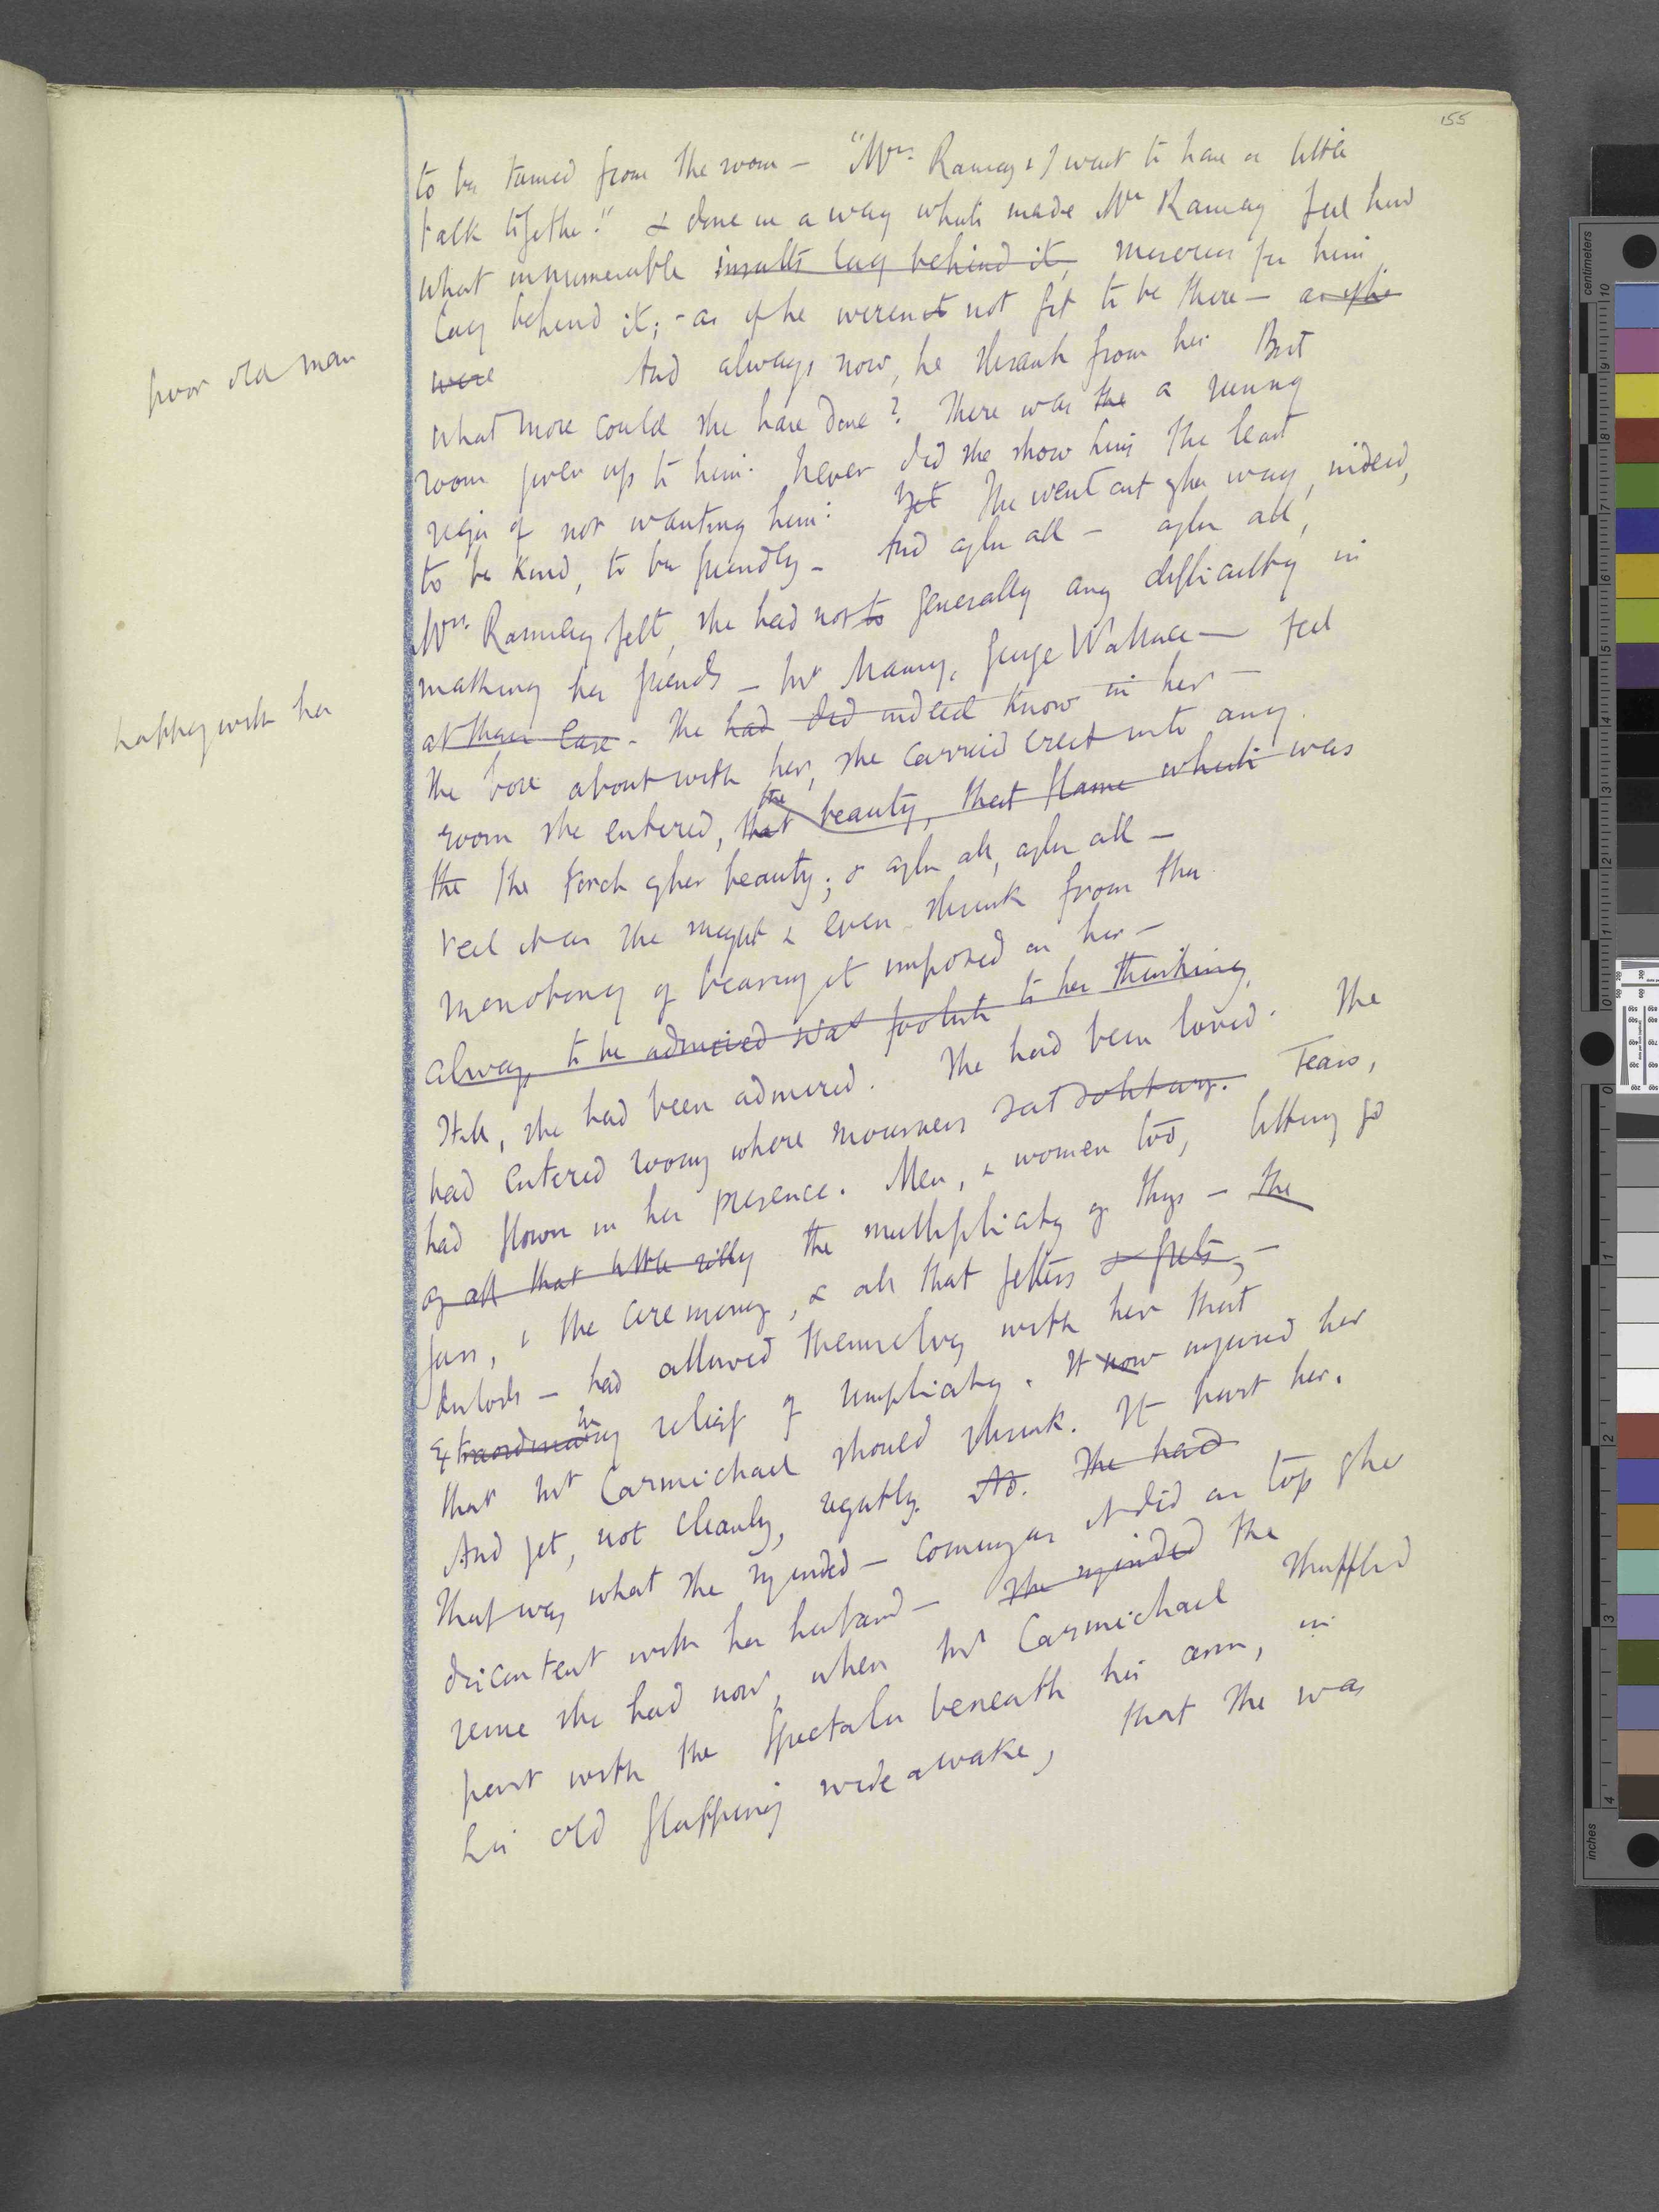 155
to be turned from the room — "Mrs. Ramsay & I want to have a little
talk together." & done in a way which made Mrs Ramsay feel how
what innumerable insults lay behind it, miseries for him
lay behind it; - as if he weren't not fit to be there — as if he
were And always now, he shrank from her. But
poor old man
what more could she have done? There was the a sunny
room given up to him. Never did she show him the least
sign of not wanting him: Yet She went out of her way, indeed,
to be kind, to be friendly — And after all — after all,
Mrs. Ramsay felt, she had not to generally any difficulty in
making her friends — Mr Manning, George Wallace — feel
at their ease. She had did indeed know in her —
happy with her
She bore about with her, she carried erect into any
room she entered, that the beauty, that flame which was
the the torch of her beauty; & after all, after all —
veil it as she might & even shrink from the
monotony of bearing it imposed on her —
always to be admired was foolish to her thinking,
Still, she had been admired. She had been loved. She
had entered rooms where mourners sat solitary. Tears,
had flown in her presence. Men, & women too, letting go
of all that little silly the multiplicity of things — the
fuss, & the ceremony, & all that fetters & frets, —
had allowed themselves with her that
Extraordinary relief of simplicity. It now injured her
that Mr Carmichael should shrink. It hurt her.
And yet, not cleanly, rightly. No. She had
That was what she minded — coming as it did on top of her
discontent with her husband — She minded the
sense she had now, when Mr Carmichael shuffled
past with the spectator beneath his arm, in
his old flapping wide awake, that she was